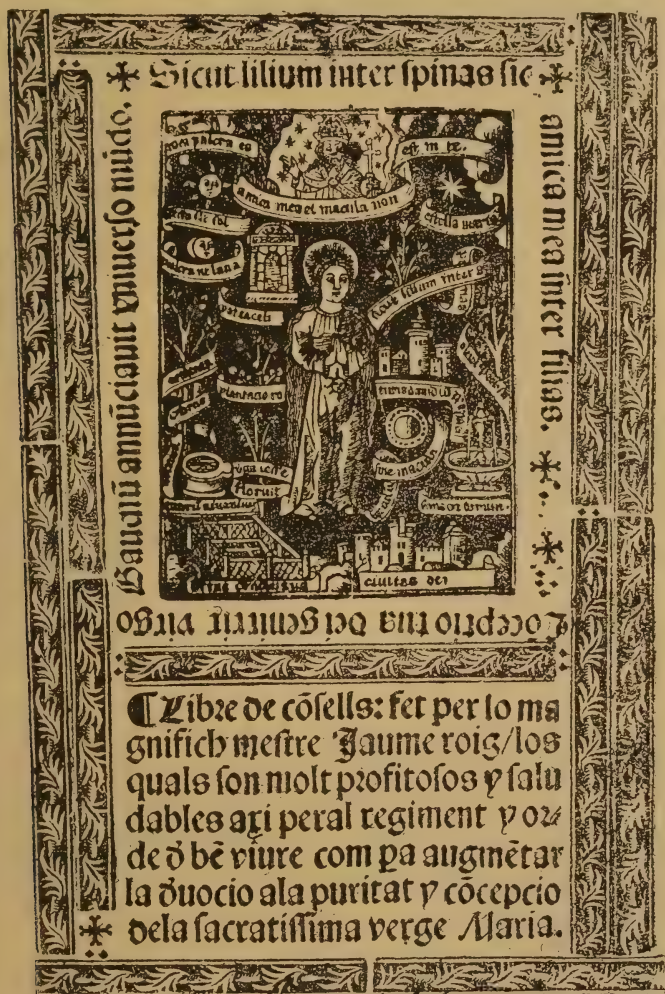 Sicut lilium inter spinas sic
amica mea inter filias.
Cōceptio tua dei genitrix virgo
Gaudiū annūciauit vniuerso mūdo.
est in te.
amica mea et macula non
electa
stella maris
sicut lilium inter s
porta celi
plantacio ro
uirga iesse
floruit
ciuitas dei
¶ Libre de cōsells: fet per lo ma
gnifich mestre Jaume roig/los
quals son molt profitosos y salu
dables axi peral regiment y or⸗
de d̄ bē viure com ꝑa augmētar
la d̄uocio ala puritat y cōcepcio
dela sacratissima verge Maria.